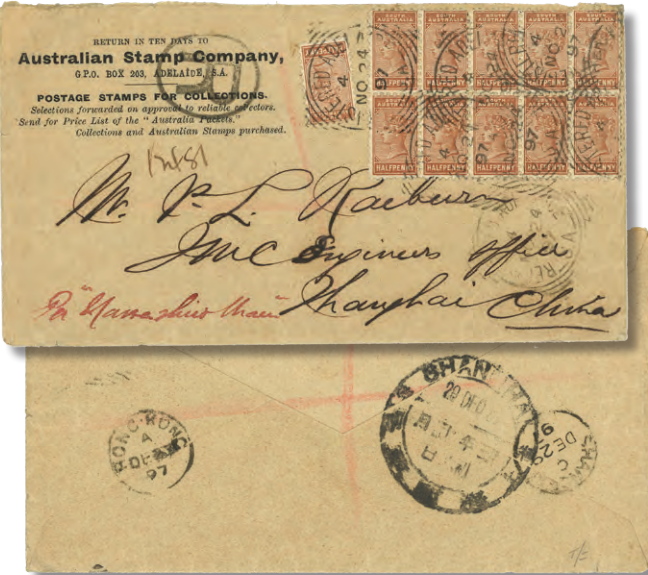 RETURN IN TEN DAYS TO
Australian Stamp Company,
G.P.O. BOX 203, ADELAIDE, S.A.
POSTAGE STAMPS FOR COLLECTIONS.
Selections forwarded on approval to reliable collectors.
Send for Price List of the "Australia Packets."
Collections and Australian Stamps purchased.
R
SOUTH AUSTRALIA
HALFPENNY
HALFPENNY
HALFPENNY
HALFPENNY
HALFPENNY
4
NO 24
97
Mr. P. L. Raeburn
Engineers office
Shanghai China
Per
HONG KONG
A
DE
97
SHANGHAI
29 DEC
SHANGHAI
C
DE 29
97